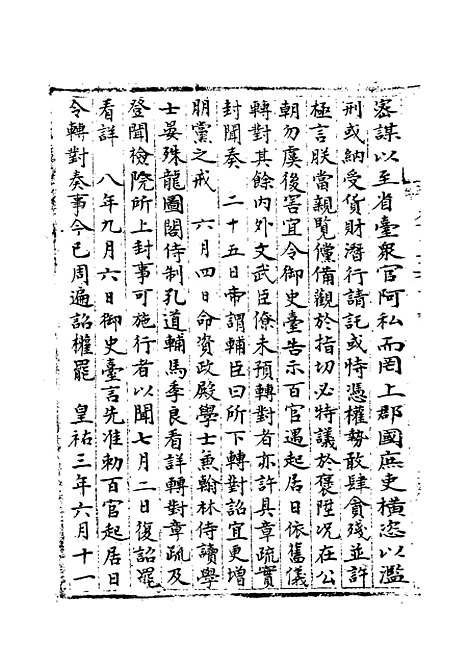 密謀以至省臺衆官阿私而罔上郡國庶吏橫恣以濫
刑或納受貨財潛行請託或恃憑權勢敢肆貪殘並許
極言朕當親覽儻備觀於指切必特議於褒陞況在公
朝勿虞後害宜令御史臺告示百官遇起居日依舊儀
轉對其餘内外文武臣僚未預轉對者亦許具章疏實
封聞奏　二十五日帝謂輔臣曰所下轉對詔宜更增
朋黨之戒　六月四日命資政殿學士兼翰林侍讀學
士晏殊龍圖閣侍制孔道輔馬季良看詳轉對章疏及
登聞檢院所上封事可施行者以聞七月二日復詔罷
看詳　八年九月六日御史臺言先准勅百官起居日
令轉對奏事今已周遍詔權罷　皇祐三年六月十一